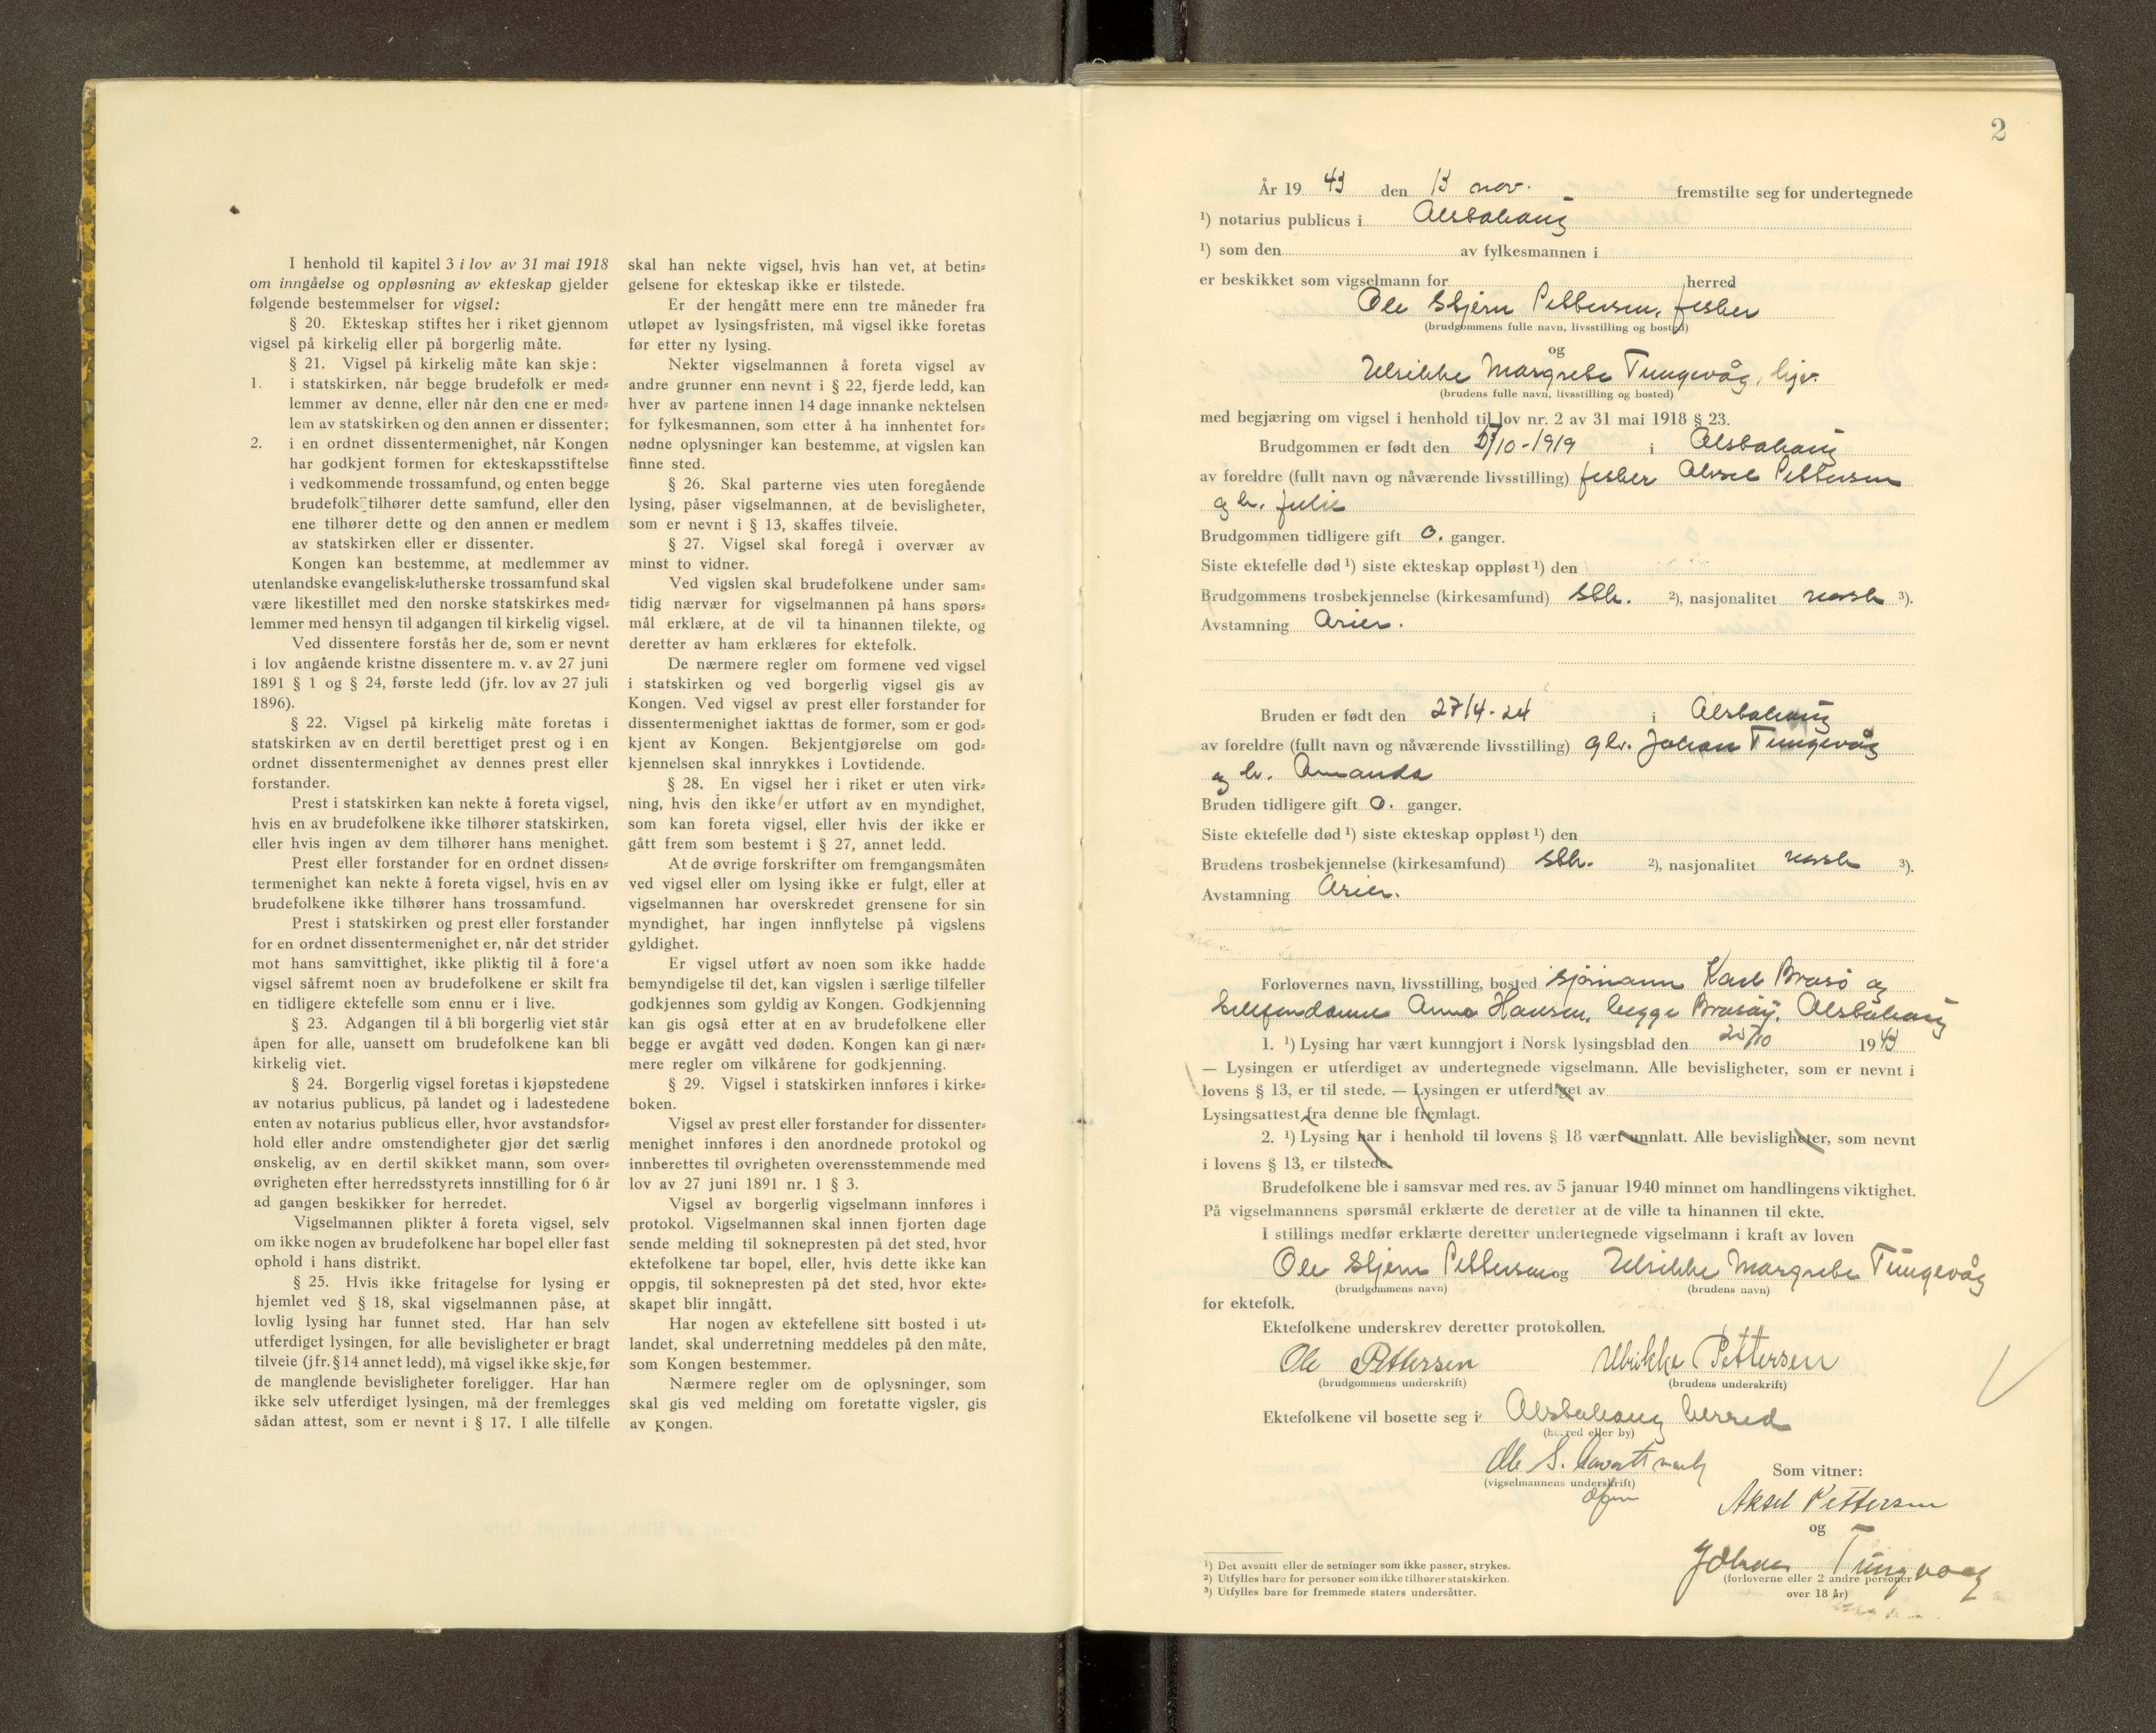 I henhold til kapitel 3 i lov av 31 mai 1918
om inngåelse og oppløsning av ekteskap gjelder
følgende bestemmelser for vigsel:
§ 20. Ekteskap stiftes her i riket gjennom
vigsel på kirkelig eller på borgerlig måte.
§ 21. Vigsel på kirkelig måte kan skje:
1. i statskirken, når begge brudefolk er med=
lemmer av denne, eller når den ene er med=
lem av statskirken og den annen er dissenter;
2. i en ordnet dissentermenighet, når Kongen
har godkjent formen for ekteskapsstiftelse
i vedkommende trossamfund, og enten begge
brudefolk tilhører dette samfund, eller den
ene tilhører dette og den annen er medlem
av statskirken eller er dissenter.
Kongen kan bestemme, at medlemmer av
utenlandske evangelisk=lutherske trossamfund skal
være likestillet med den norske statskirkes med=
lemmer med hensyn til adgangen til kirkelig vigsel.
Ved dissentere forstås her de, som er nevnt
i lov angående kristne dissentere m. v. av 27 juni
1891 § 1 og § 24, første ledd (jfr. lov av 27 juli
1896).
§ 22. Vigsel på kirkelig måte foretas i
statskirken av en dertil berettiget prest og i en
ordnet dissentermenighet av dennes prest eller
forstander.
Prest i statskirken kan nekte å foreta vigsel,
hvis en av brudefolkene ikke tilhører statskirken,
eller hvis ingen av dem tilhører hans menighet.
Prest eller forstander for en ordnet dissen=
termenighet kan nekte å foreta vigsel, hvis en av
brudefolkene ikke tilhører hans trossamfund.
Prest i statskirken og prest eller forstander
for en ordnet dissentermenighet er, når det strider
mot hans samvittighet, ikke pliktig til å fore'a
vigsel såfremt noen av brudefolkene er skilt fra
en tidligere ektefelle som ennu er i live.
§ 23. Adgangen til å bli borgerlig viet står
åpen for alle, uansett om brudefolkene kan bli
kirkelig viet.
§ 24. Borgerlig vigsel foretas i kjøpstedene
av notarius publicus, på landet og i ladestedene
enten av notarius publicus eller, hvor avstandsfor=
hold eller andre omstendigheter gjør det særlig
ønskelig, av en dertil skikket mann, som over=
øvrigheten efter herredsstyrets innstilling for 6 år
ad gangen beskikker for herredet.
Vigselmannen plikter å foreta vigsel, selv
om ikke nogen av brudefolkene har bopel eller fast
ophold i hans distrikt.
§ 25. Hvis ikke fritagelse for lysing er
hjemlet ved § 18, skal vigselmannen påse, at
lovlig lysing har funnet sted. Har han selv
utferdiget lysingen, før alle bevisligheter er bragt
tilveie (jfr. § 14 annet ledd), må vigsel ikke skje, før
de manglende bevisligheter foreligger. Har han
ikke selv utferdiget lysingen, må der fremlegges
sådan attest, som er nevnt i § 17. I alle tilfelle
skal han nekte vigsel, hvis han vet, at betin=
gelsene for ekteskap ikke er tilstede.
Er der hengått mere enn tre måneder fra
utløpet av lysingsfristen, må vigsel ikke foretas
før etter ny lysing.
Nekter vigselmannen å foreta vigsel av
andre grunner enn nevnt i § 22, fjerde ledd, kan
hver av partene innen 14 dage innanke nektelsen
for fylkesmannen, som etter å ha innhentet for=
nødne oplysninger kan bestemme, at vigslen kan
finne sted.
§ 26. Skal parterne vies uten foregående
lysing, påser vigselmannen, at de bevisligheter,
som er nevnt i § 13, skaffes tilveie.
§ 27. Vigsel skal foregå i overvær av
minst to vidner.
Ved vigslen skal brudefolkene under sam=
tidig nærvær for vigselmannen på hans spørs=
mål erklære, at de vil ta hinannen tilekte, og
deretter av ham erklæres for ektefolk.
De nærmere regler om formene ved vigsel
i statskirken og ved borgerlig vigsel gis av
Kongen. Ved vigsel av prest eller forstander for
dissentermenighet iakttas de former, som er god=
kjent av Kongen. Bekjentgjørelse om god=
kjennelsen skal innrykkes i Lovtidende.
§ 28. En vigsel her i riket er uten virk=
ning, hvis den ikke er utført av en myndighet,
som kan foreta vigsel, eller hvis der ikke er
gått frem som bestemt i § 27, annet ledd.
At de øvrige forskrifter om fremgangsmåten
ved vigsel eller om lysing ikke er fulgt, eller at
vigselmannen har overskredet grensene for sin
myndighet, har ingen innflytelse på vigslens
gyldighet.
Er vigsel utført av noen som ikke hadde
bemyndigelse til det, kan vigslen i særlige tilfeller
godkjennes som gyldig av Kongen. Godkjenning
kan gis også etter at en av brudefolkene eller
begge er avgått ved døden. Kongen kan gi nær=
mere regler om vilkårene for godkjenning.
§ 29. Vigsel i statskirken innføres i kirke=
boken.
Vigsel av prest eller forstander for dissenter=
menighet innføres i den anordnede protokol og
innberettes til øvrigheten overensstemmende med
lov av 27 juni 1891 nr. 1 § 3.
Vigsel av borgerlig vigselmann innføres i
protokol. Vigselmannen skal innen fjorten dage
sende melding til soknepresten på det sted, hvor
ektefolkene tar bopel, eller, hvis dette ikke kan
oppgis, til soknepresten på det sted, hvor ekte=
skapet blir inngått.
Har nogen av ektefellene sitt bosted i ut=
landet, skal underretning meddeles på den måte,
som Kongen bestemmer.
Nærmere regler om de oplysninger, som
skal gis ved melding om foretatte vigsler, gis
av Kongen.
2
År 19 43 den 13 nov. fremstilte seg for undertegnede
¹) notarius publicus i Alstahaug
¹) som den av fylkesmannen i
er beskikket som vigselmann for herred
Ole Stjern Pettersen, fisker
(brudgommens fulle navn, livsstilling og bosted)
og
Ulrikke Margrete Tungevåg, hjv.
(brudens fulle navn, livsstilling og bosted)
med begjæring om vigsel i henhold til lov nr. 2 av 31 mai 1918 § 23.
Brudgommen er født den /10-1919 i Alstahaug
av foreldre (fullt navn og nåværende livsstilling) fisker Aksel Pettersen
og h. Julie
Brudgommen tidligere gift 0. ganger.
Siste ektefelle død ¹) siste ekteskap oppløst ¹) den
Brudgommens trosbekjennelse (kirkesamfund) stk. ²), nasjonalitet norsk ³).
Avstamning Arier.
Bruden er født den 27/4-24 i Alstahaug
av foreldre (fullt navn og nåværende livsstilling) gbr. Johan Tungevåg
og h. Amanda
Bruden tidligere gift 0. ganger.
Siste ektefelle død ¹) siste ekteskap oppløst ¹) den
Brudens trosbekjennelse (kirkesamfund) stk. ²), nasjonalitet norsk ³).
Avstamning Arier.
Forlovernes navn, livsstilling, bosted sjømann Karl Brasø og
telefondame Anna Hansen, begge Brasøy, Alstahaug
1. ¹) Lysing har vært kunngjort i Norsk lysingsblad den 25/10 1943
— Lysingen er utferdiget av undertegnede vigselmann. Alle bevisligheter, som er nevnt i
lovens § 13, er til stede. — Lysingen er utferdiget av
Lysingsattest fra denne ble fremlagt.
2. ¹) Lysing har i henhold til lovens § 18 vært unnlatt. Alle bevisligheter, som nevnt
i lovens § 13, er tilstede.
Brudefolkene ble i samsvar med res. av 5 januar 1940 minnet om handlingens viktighet.
På vigselmannens spørsmål erklærte de deretter at de ville ta hinannen til ekte.
I stillings medfør erklærte deretter undertegnede vigselmann i kraft av loven
Ole Stjern Pettersen og Ulrikke Margrete Tungevåg
(brudgommens navn) (brudens navn)
for ektefolk.
Ektefolkene underskrev deretter protokollen.
Ole Pettersen Ulrikke Pettersen
(brudgommens underskrift) (brudens underskrift)
Ektefolkene vil bosette seg i Alstahaug herred
(herred eller by)
Ole S.
(vigselmannens underskrift)
Som vitner:
Aksel Pettersen
og
Johan Tungvaag
(forloverne eller 2 andre personer
over 18 år)
¹) Det avsnitt eller de setninger som ikke passer, strykes.
²) Utfylles bare for personer som ikke tilhører statskirken.
³) Utfylles bare for fremmede staters undersåtter.